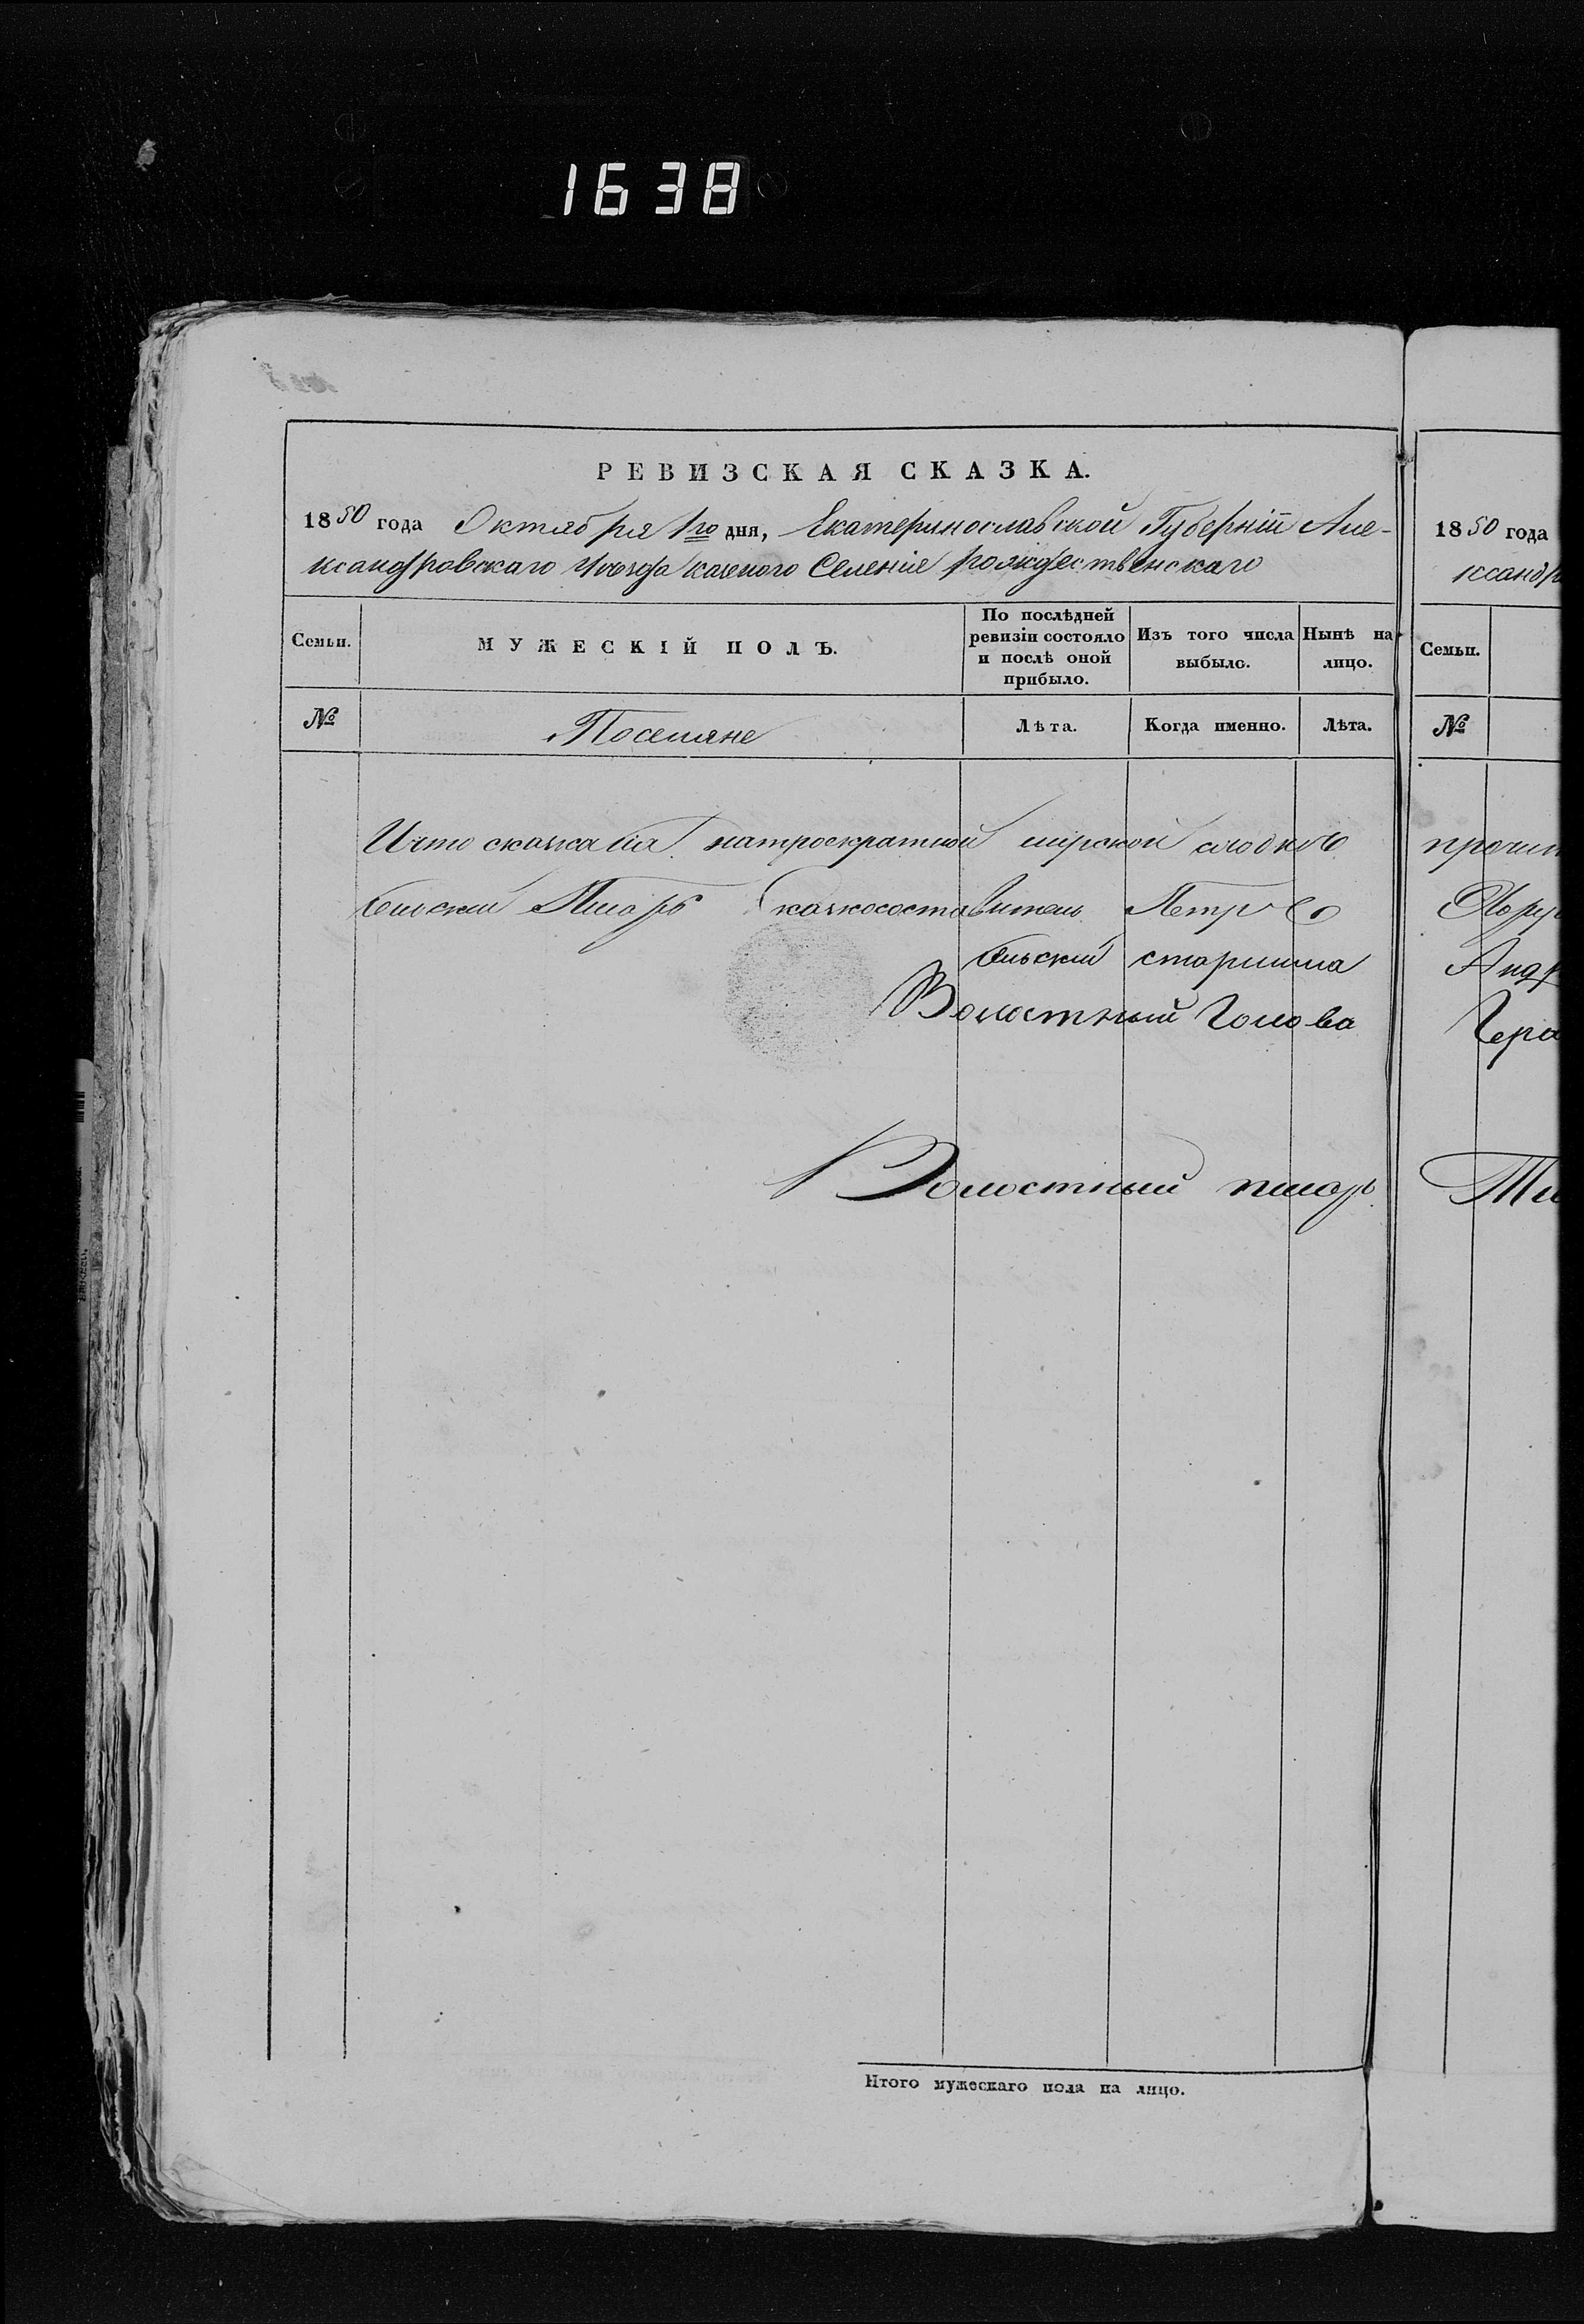 1638
РЕВИЗСКАЯ СКАЗКА.
1850 года Октября 1го дня, Екатеринославской Губерніи Але-
ксандровскаго Уѣзда казеного Селеніе рождественскаго
Семьи.
МУЖЕСКІЙ ПОЛЪ.
По послѣдней ревизіи состояло и послѣ оной прибыло.
Изъ того числа выбыло.
Нынѣ на лицо.
№
Поселяне
Лѣта.
Когда именно.
Лѣта.
Ичто сказка сія натроекратной мирской сходкѣ
сельскій Писарь Сказкосоставитель Петр
сельскій старшина
Волостный Голова
Волостный писарь
Итого мужескаго пола на лицо.
1850 года
ксандр
Семьи.
№
прочит
Андр
Гера